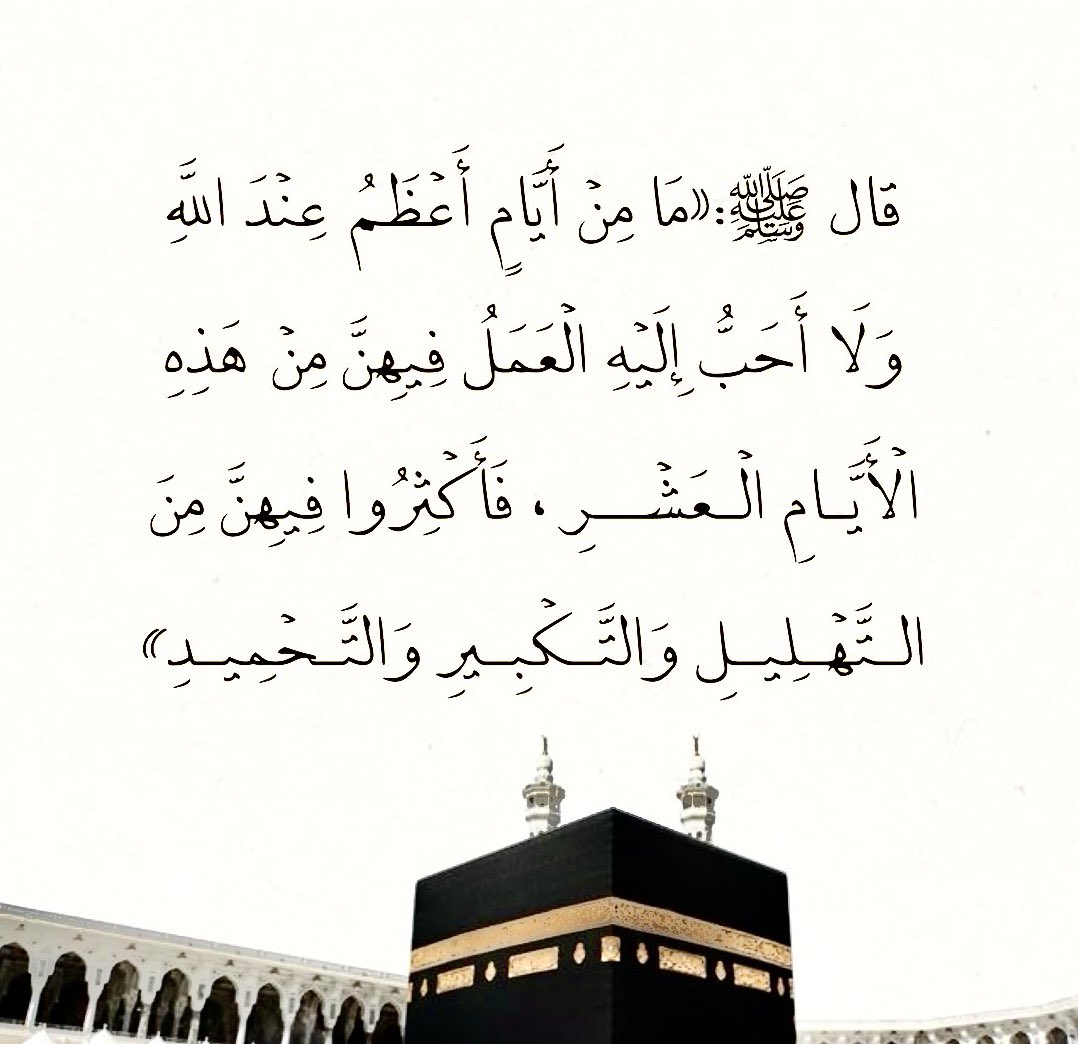 قال ﷺ:«مَا مِنْ أَيَّامٍ أَعْظَمُ عِنْدَ اللَّهِ
وَلَا أَحَبُّ إِلَيْهِ الْعَمَلُ فِيهِنَّ مِنْ هَذِهِ
الْأَيَّـامِ الْـعَشْـــرِ ، فَأَكْثِرُوا فِيهِنَّ مِنَ
الـتَّهْـلِيـلِ وَالتَّـكْبِـيرِ وَالتَّـحْمِيـدِ»